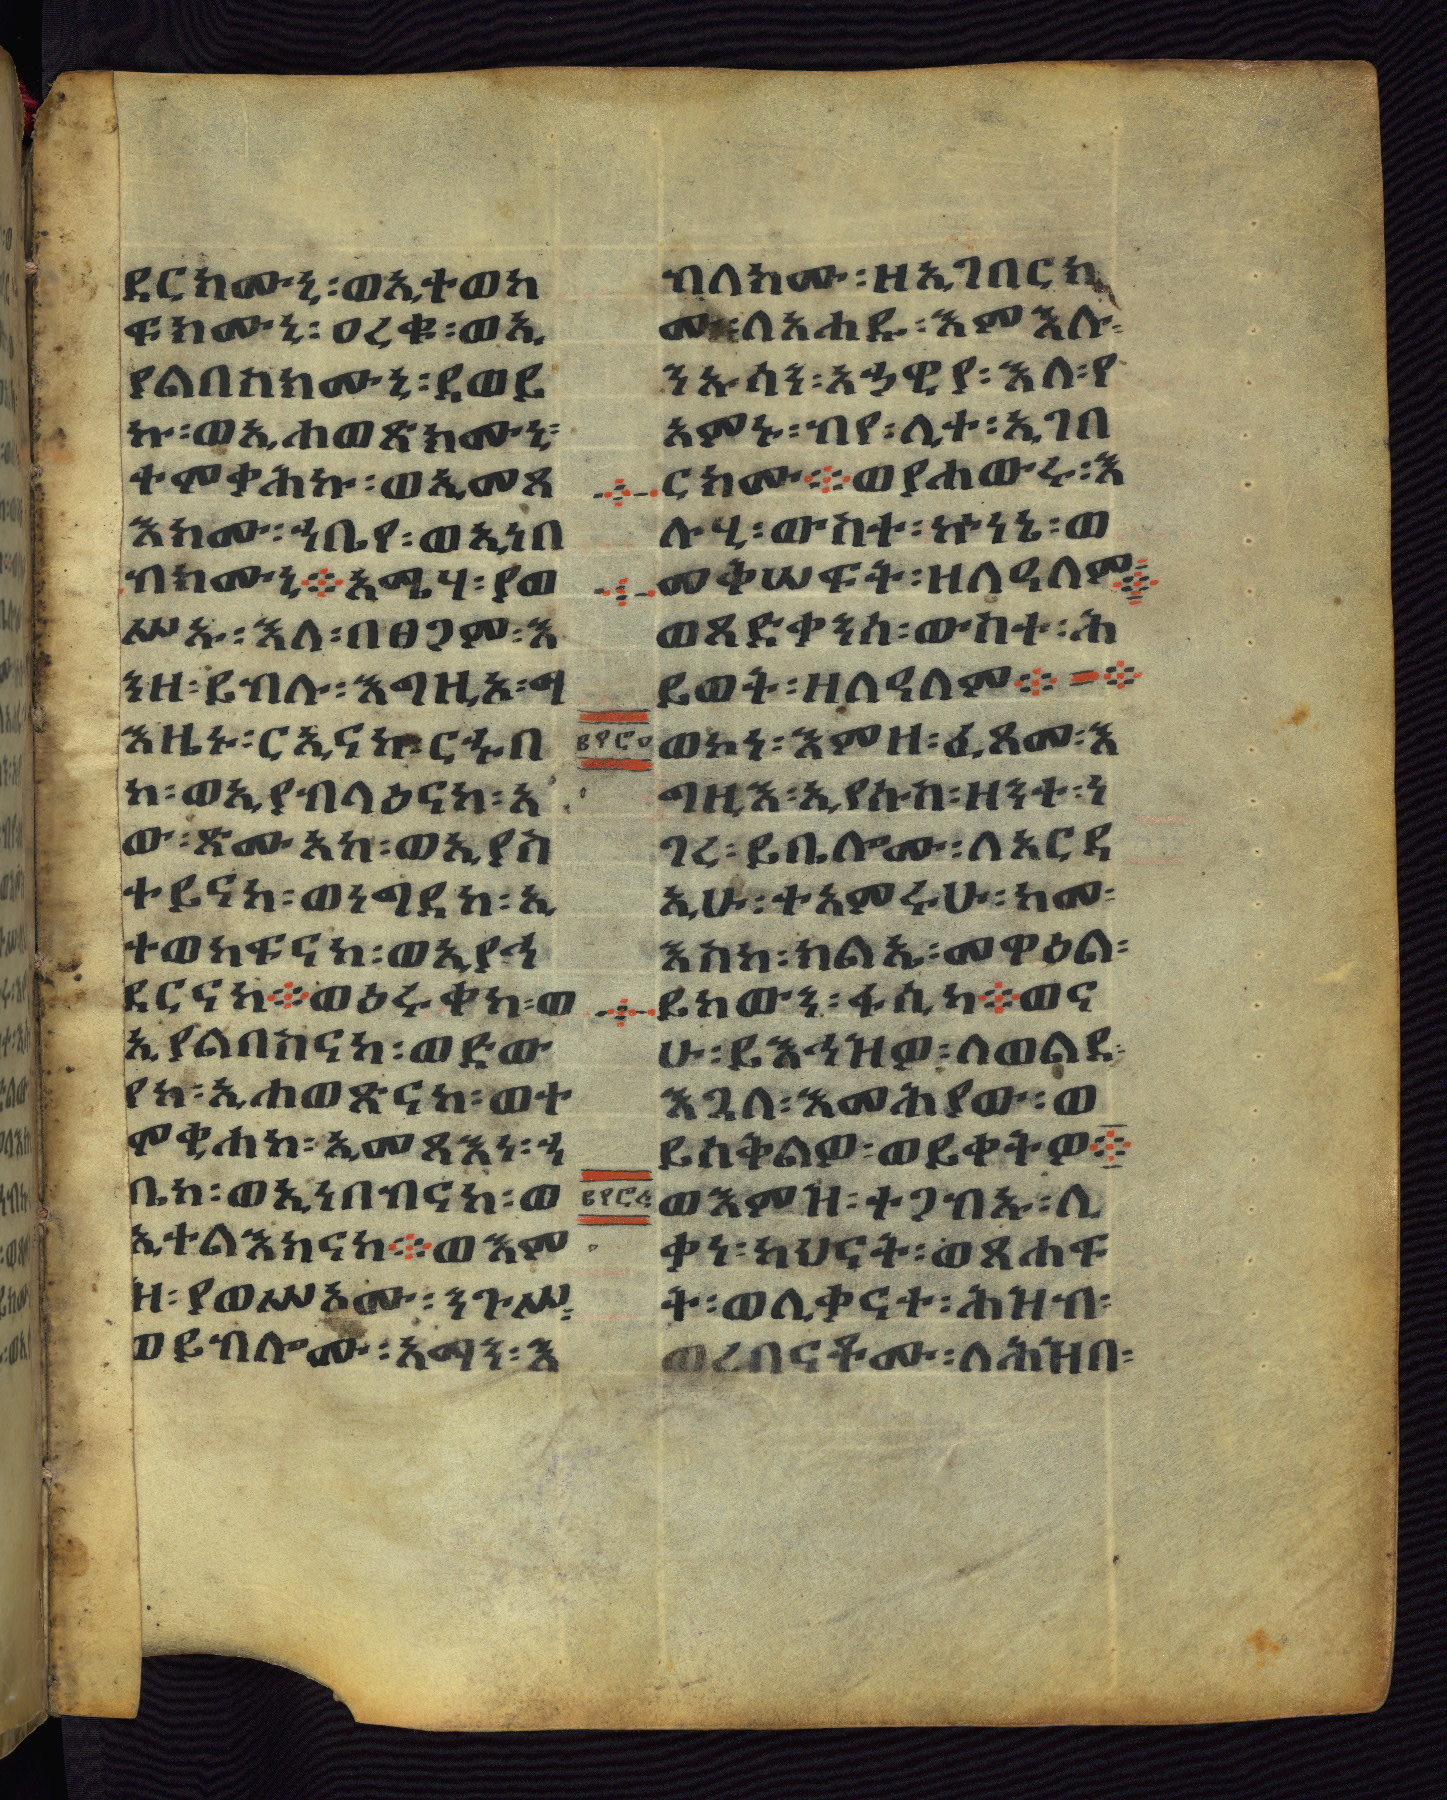 ደርክሙኒ፡ወኢተወክ
ፍክሙኒ፡ዐረቁ፡ወኢ
ያልበስክሙኒ፡ደወይ
ኩ፡ወኢሐወጽክሙኒ፡
ተሞቃሕኩ፡ወኢመጻ
እክሙ፡ኀቤየ፡ወኢነበ
ብክሙኒ፨አሜሃ፡ያወ
ሥኡ፡እለ፡በፀጋም፡እ
ንዘ፡ይብሉ፡እግዚኦ፡ማ
እዜኑ፡ርኢናከ፡ርኁበ
ከ፡ወኢያብላዕናከ፡አ
ው፡ጽሙአከ፡ወኢያስ
ተይናከ፡ወነግደከ፡ኢ
ተወከፍናከ፡ወኢያኀ
ደርናከ፨ወዕሩቀከ፡ወ
ኢያልበስናከ፡ወድው
የከ፡ኢሐወጽናከ፡ወተ
ሞቂሐከ፡ኢመጻእነ፡ኀ
ቤከ፡ወኢነበብናከ፡ወ
ኢተልእክናከ፨ወእም
ዝ፡ያወሥኦሙ፡ንጉሥ፡
ወይብሎሙ፡አማን፡እ
ብለክሙ፡ዘኢገበርክ
ሙ፡ለአሐዱ፡እምእሉ፡
ንኡሳን፡አኃዊየ፡እለ፡የ
አምኑ፡ብየ፡ሊተ፡ኢገበ
ርክሙ፨ወየሐውሩ፡እ
ሉሂ፡ውስተ፡ኵነኔ፡ወ
መቅሠፍት፡ዘለዓለም፨
ወጻድቃንሰ፡ውስተ፡ሕ
ይወት፡ዘለዓለም፨
ወኮነ፡እምዘ፡ፈጸመ፡እ
ግዚእ፡ኢየሱስ፡ዘንተ፡ነ
ገረ፡ይቤሎሙ፡ለአርዳ
ኢሁ፡ተአምሩሁ፡ከመ፡
እስከ፡ክልኤ፡መዋዕል፡
ይከውን፡ፋሲካ፨ወና
ሁ፡ይእኅዝዎ፡ለወልደ፡
እጓለ፡እመሕያው፡ወ
ይሰቅልዎ፡ወይቀትዎ፨
ወእምዝ፡ተጋብኡ፡ሊ
ቃነ፡ካህናት፡ወጸሐፍ
ት፡ወሊቃናተ፡ሕዝብ፡
ወረበናቶሙ፡ለሕዝበ፡